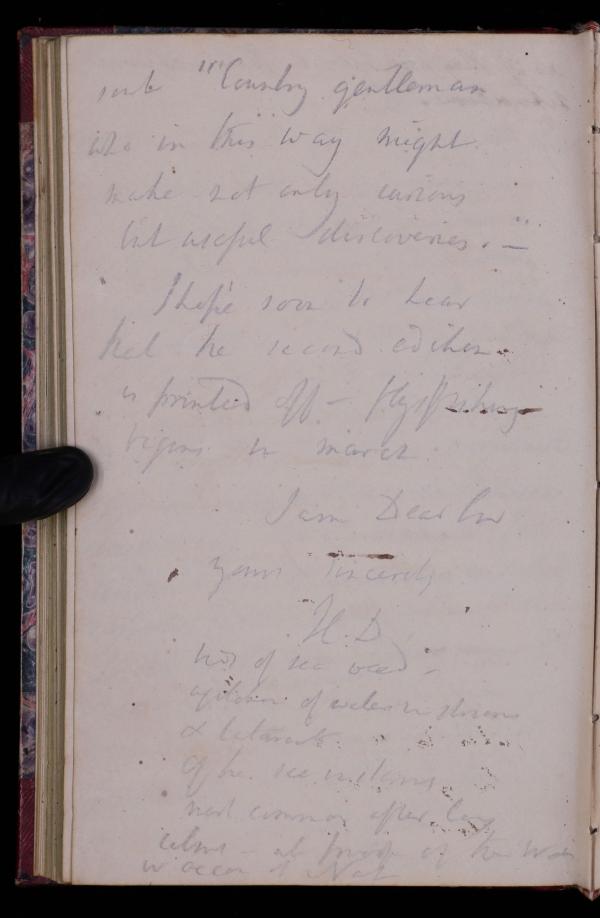 "Country gentleman
who in this way might
make not only curious
but useful discoveries. —
I hope soon to hear
that the second edition
is printed off — Flyfishing
begins in march.
I am Dear Sir
yours sincerely
H. D.
of sea weed —
agitation of water in storms
& cataracts.
of the sea in storms
most common after long
calms —